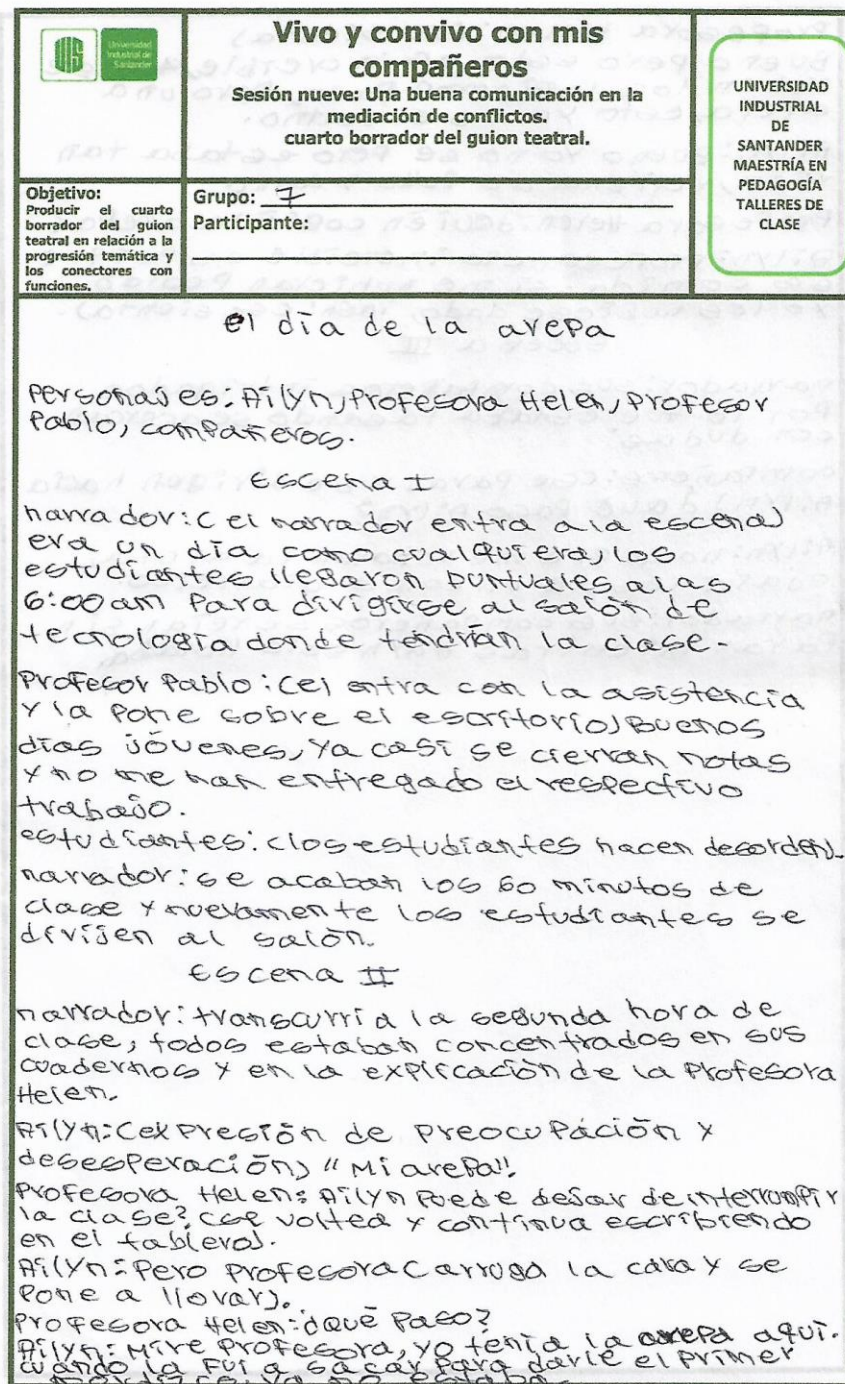 UIS
Universidad
Industrial de
Santander
Vivo y convivo con mis
compañeros
Sesión nueve: Una buena comunicación en la
mediación de conflictos.
cuarto borrador del guion teatral.
UNIVERSIDAD
INDUSTRIAL
DE
SANTANDER
MAESTRÍA EN
PEDAGOGÍA
TALLERES DE
CLASE
Objetivo:
Producir el cuarto
borrador del guion
teatral en relación a la
progresión temática y
los conectores con
funciones.
Grupo: 7
Participante:
el día de la arepa
Personajes: Ailyn, Profesora Helen, Profesor
Pablo, compañeros.
Escena I
narrador: (el narrador entra a la escena)
era un día como cualquiera, los
estudiantes llegaron puntuales a las
6:00am para dirigirse al salón de
tecnología donde tendrían la clase.
Profesor Pablo: (el entra con la asistencia
y la pone sobre el escritorio) Buenos
días jóvenes, ya casi se cierran notas
y no me han entregado el respectivo
trabajo.
estudiantes: (los estudiantes hacen desorden).
narrador: se acaban los 60 minutos de
clase y nuevamente los estudiantes se
dirijen al salón.
Escena II
narrador: transcurría la segunda hora de
clase, todos estaban concentrados en sus
cuadernos y en la explicación de la Profesora
Helen.
Ailyn: (expresión de preocupación y
desesperación) "Mi arepa".
Profesora Helen: Ailyn puede dejar de interrumpir
la clase? (se voltea y continua escribiendo
en el tablero).
Ailyn: Pero profesora (arruga la cara y se
pone a llorar).
Profesora Helen: ¿Qué paso?
Ailyn: Mire Profesora, yo tenía la arepa aquí.
cuando la fui a sacar para darle el primer
mordisco, ya no estaba.